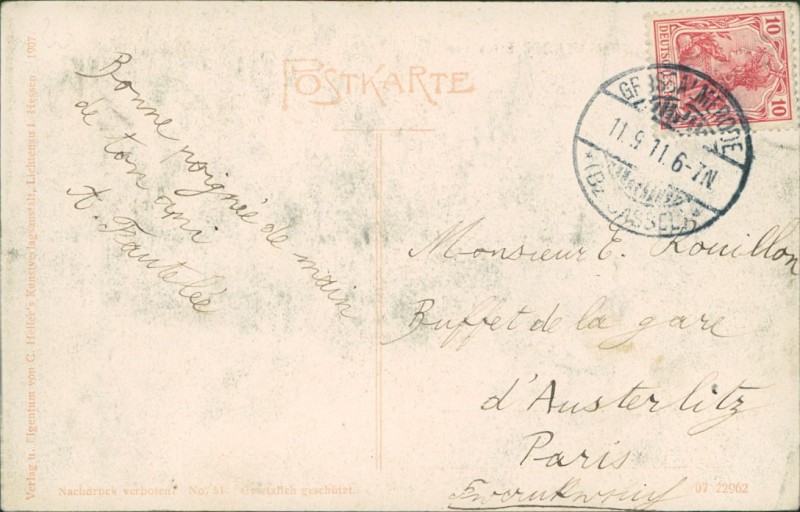 Verlag u. Eigentum von C. Heller's Kunstverlagsanstalt, Lichtenau i. Hessen 1907
POSTKARTE
10 10
DEUTSCHES
11.9.11.6-7N.
*(Bz. CASSEL)*
Bonne poignée de main
de ton ami
A. Fautelée
Monsieur E. Rouillon
Buffet de la gare
d'Austerlitz
Paris
Frankreich
Nachdruck verboten. No. 51. Gesetzlich geschützt.
07 22962